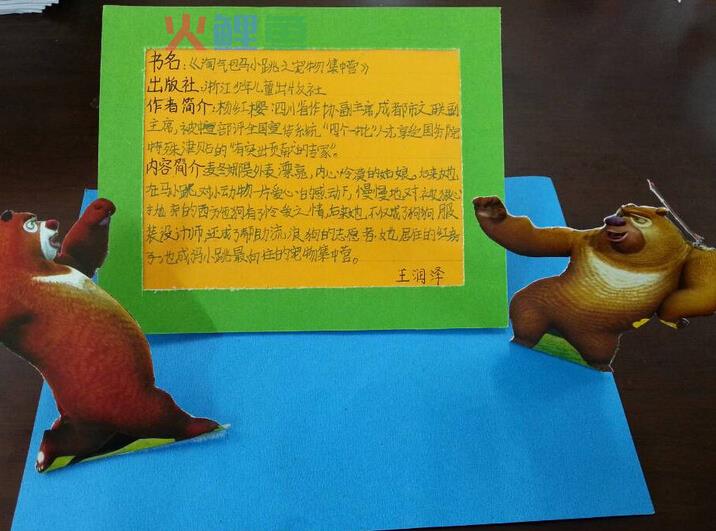 火鲤鱼
书名:《淘气包马小跳之宠物集中营》
出版社:浙江少年儿童出版社
作者简介:杨红樱 四川省作协副主席,成都市文联副
主席,被中宣部评全国宣传系统"四个一批"人才,享受国务院
特殊津贴的"有突出贡献的专家"。
内容简介 麦冬娜是外表漂亮,内心冷漠的姑娘,后来她
在马小跳对小动物一片爱心的感动下,慢慢地对被狠心
抛弃的西施狗有了怜爱之情,后来她不仅成了狗狗服
装设计师,还成了帮助流浪狗的志愿者,她居住的红房
子也成马小跳最向往的宠物集中营。
王润泽